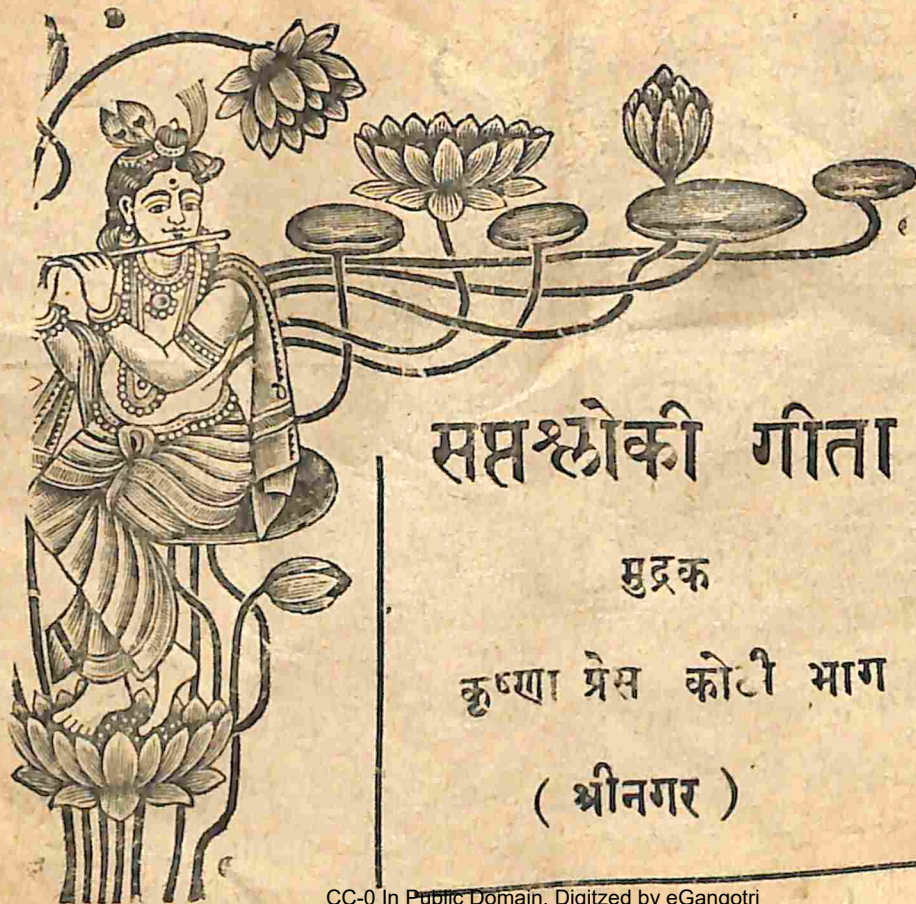 सप्तश्लोकी गीता
मुद्रक
कृष्णा प्रेस कोठी भाग
( श्रीनगर )
CC-0 In Public Domain. Digitzed by eGangotri